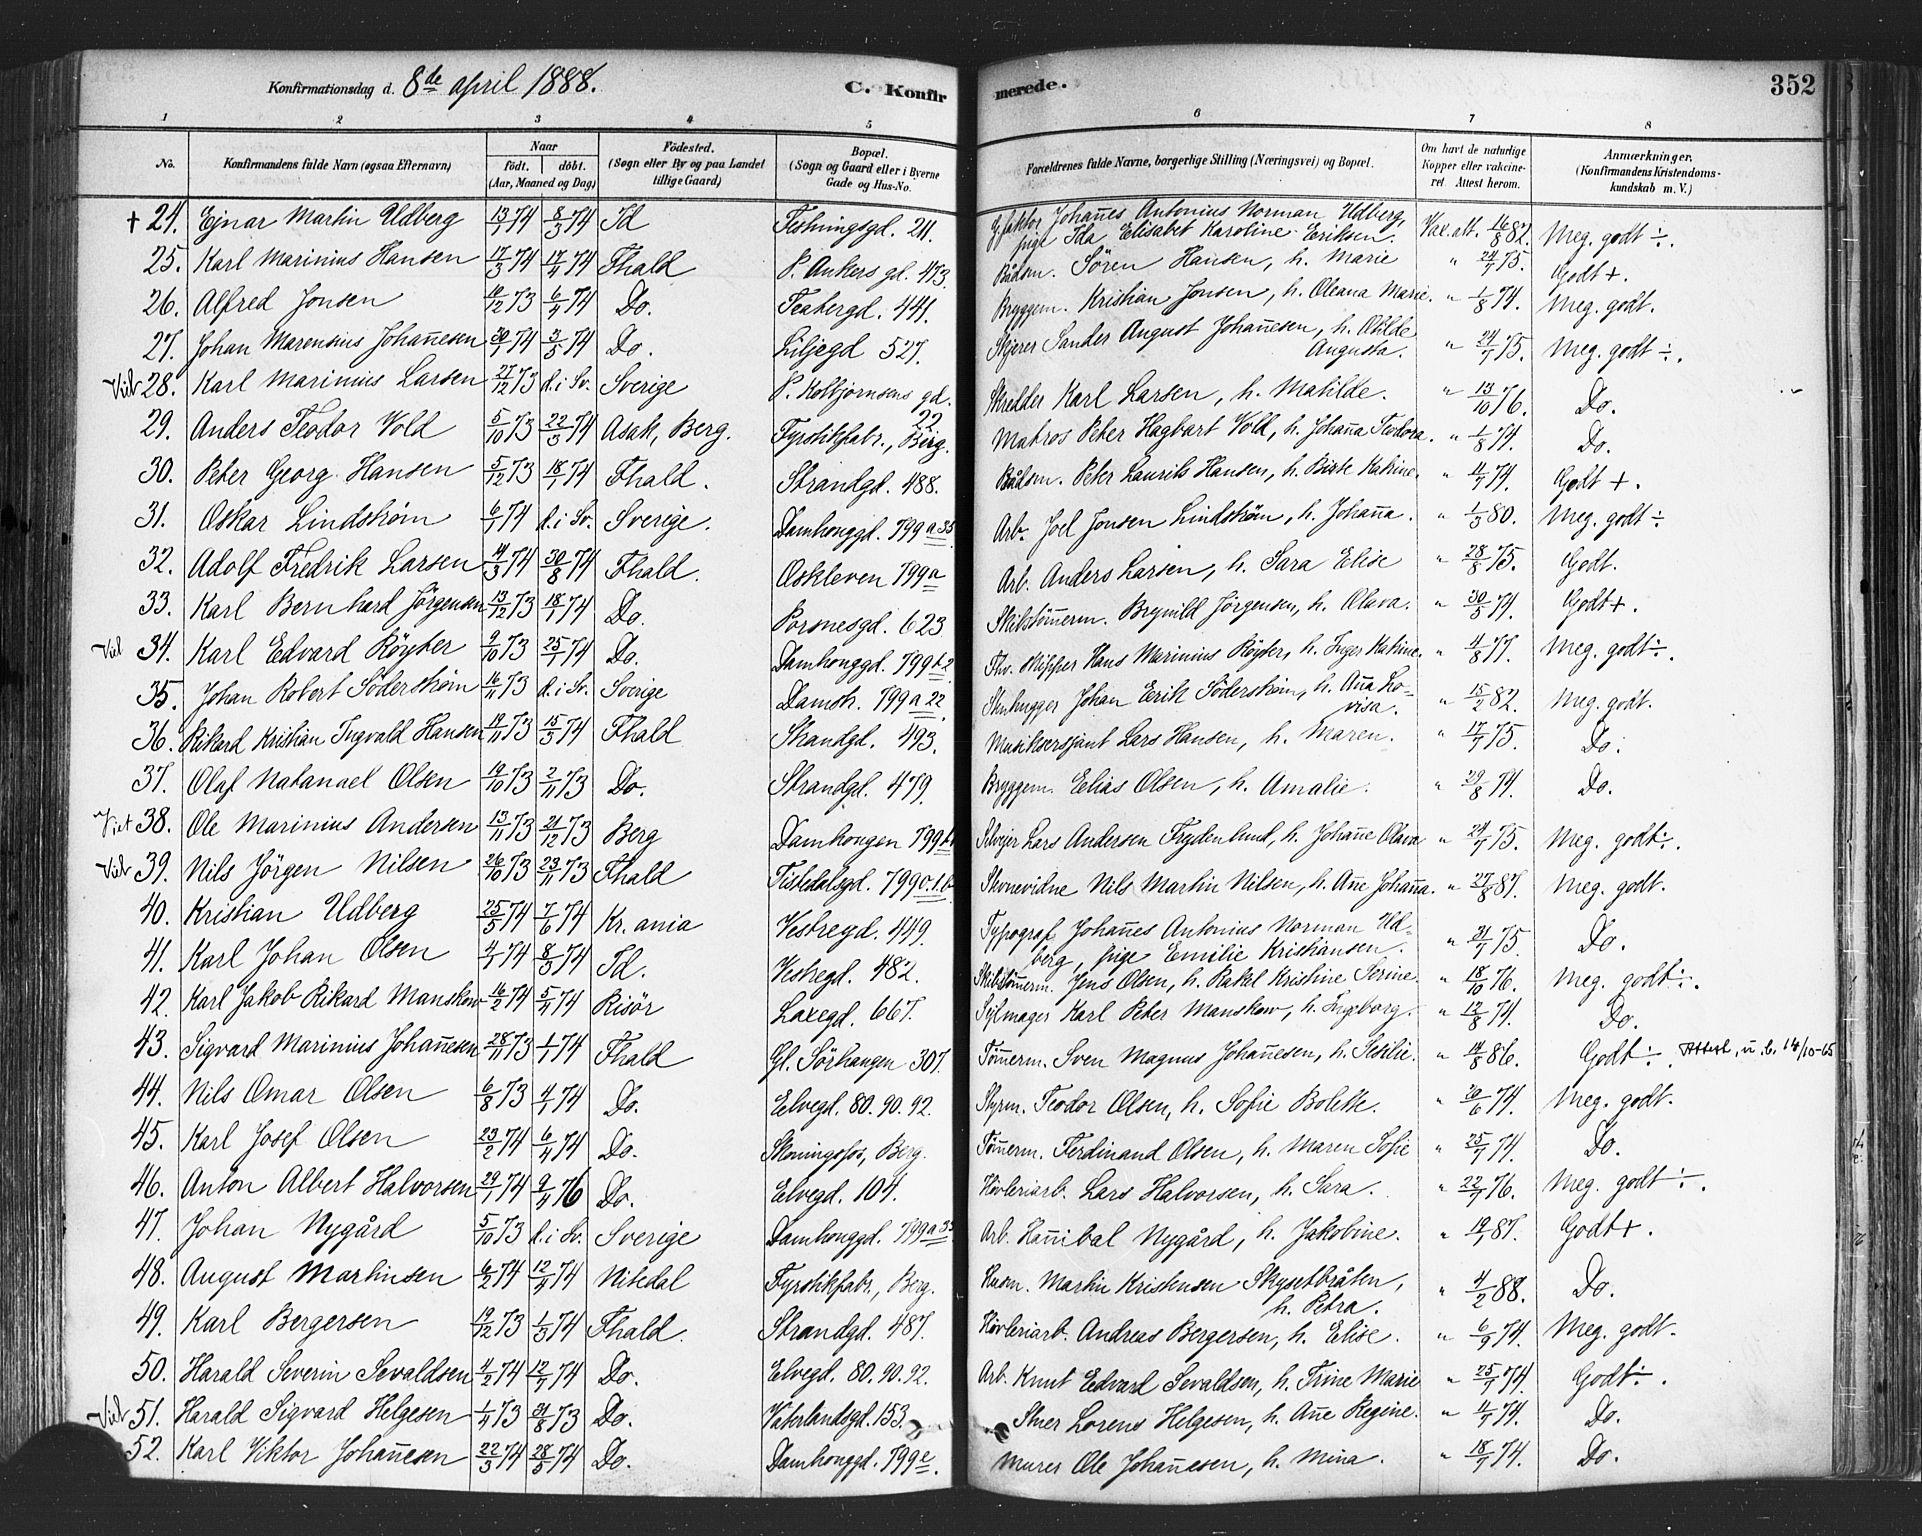 Konfirmationsdag d. 8de april 1888. C. Konfirmerede. 352
1 2 3 4 5 6 7 8
No. Konfirmandens fulde Navn (ogsaa Efternavn) Naar födt. döbt. (Aar, Maaned og Dag) Födested. (Sogn eller By og paa Landet tillige Gaard) Bopæl. (Sogn og Gaard eller i Byerne Gade og Hus-No. Forældrenes fulde Navne, borgerlige Stilling (Næringsvei) og Bopæl. Om havt de naturlige Kopper eller vakcineret. Attest herom. Anmærkninger. (Konfirmandens Kristendomskundskab m. V.)
+ 24. Ejnar Martin Udberg 13/1 74 8/3 74 Id Festningsgd. 211. Gjaktor. Johan̄es Antonius Norman Udberg, pige Ida Elisabet Karoline Eriksen. Vac. att. 16/8 82. Meg. godt ÷.
25. Karl Marinius Hansen 17/3 74 17/4 74 Fhald P. Ankers gd. 473. Bådsm. Sören Hansen, h. Marie " 24/7 75. Godt +.
26. Alfred Jonsen 10/12 73 6/4 74 Do. Teatergd. 441. Bryggem. Kristian Jonsen, h. Oleana Marie. " 1/8 74. Meg. godt.
27. Johan Marensius Johan̄esen 30/1 74 3/5 74 Do. Liljegd 527. Skjerer Sander August Johan̄esen, h. Otilde Augusta. " 24/7 75. Meg. godt ÷.
Viet 28. Karl Marinius Larsen 27/12 73 d. i Sv. Sverige P. Kolbjörnsens gd. 22 Skredder Karl Larsen, h. Matilde. " 13/10 76. Do.
29. Anders Teodor Vold 5/10 73 22/3 74 Asak, Berg. Fyrstikfabr., Berg. Matros Peter Hagbart Vold, h. Johan̄a Teodora. " 1/8 74. Do.
30. Peter Georg Hansen 5/12 73 18/1 74 Fhald. Strandgd. 488. Bådsm. Peter Laurits Hansen, h. Birte Katrine. " 4/7 74. Godt +.
31. Oskar Lindström 6/1 74 d. i Sv. Sverige. Damhauggd. 799 a 35. Arb. Joel Jonsen Lindström, h. Johan̄a. " 1/3 80. Meg. godt ÷
32. Adolf Fredrik Larsen 4/3 74 30/8 74 Fhald. Oskleven 799 a Arb. Anders Larsen, h. Sara Elise " 28/8 75. Godt.
33. Karl Bernherd Jörgensen 13/12 73 18/1 74 Do. Porsnesgd. 623 Skibstöm̄erm. Brynild Jörgensen, h. Olava. " 30/5 74. Godt +.
Viet 34. Karl Edvard Röyter 9/10 73 25/1 74 Do. Damhauggd. 799 b 2 Fhv. skipper Hans Marinius Röyter, h. Inger Katrine. " 4/8 77. Meg. godt ÷.
35. Johan Robert Söderström 16/11 73 d. i Sv. Sverige Damstr. 799 a 22. Stenhugger Johan Erik Söderström, h. An̄a Lovisa. " 15/2 82. Meg. godt.
36. Rikard Kristian Ingvald Hansen 19/11 73 15/3 74 Fhald Strandgd. 493. Musiksersjant Lars Hansen, h. Maren. " 17/7 75. Do.
37. Olaf Natanael Olsen 19/10 73 2/11 73 Do. Strandgd. 479. Bryggem. Elias Olsen, h. Amalie. " 29/8 74. Do.
Viet 38. Ole Marinius Andersen 13/11 73 21/12 73 Berg Damhaugen 799 b Selvejer Lars Andersen Frydenlund, h. Johan̄e Olava " 24/7 75. Meg. godt ÷.
Viet 39. Nils Jörgen Nilsen 26/10 73 23/11 73 Fhald Tistedalsgd. 799 c. 1. b. Stevnevidne Nils Martin Nilsen, h. An̄e Johan̄a. " 27/8 87. Meg. godt.
40. Kristian Udberg 25/5 74 7/6 74 Kr. ania Vestregd. 449. Typograf Johan̄es Antonius Norman Udberg, pige Emilie Kristiansen. " 31/7 75 Do.
41. Karl Johan Olsen 4/1 74 8/3 74 Id. Vestregd. 482. Skibstöm̄erm. Jens Olsen, h. Rakel Kristine Serine. " 18/10 76. Meg. godt ÷.
42. Karl Jakob Rikard Manskow 16/2 74 5/4 74 Risör Laxegd. 667. Sejlmager Karl Peter Manskow, h. Ingeborg. " 12/8 74. Do.
43. Sigvard Marinius Johan̄esen 28/11 73 1/1 74 Fhald Gl. Sörhaugen 307. Töm̄erm. Sven Magnus Johan̄esen, h. Sesilie. " 14/8 86. Godt ÷. Attest, u. b. 14/10-65
44. Nils Omar Olsen 6/8 73 4/1 74 Do. Elvegd. 80. 90. 92. Styrm. Teodor Olsen, h. Sofie Bolette. " 20/6 74. Meg. godt.
45. Karl Josef Olsen 23/2 74 6/4 74 Do. Skoningsfos, Berg. Töm̄erm. Ferdinand Olsen, h. Maren Sofie " 25/7 74. Do.
46. Anton Albert Halvorsen 29/1 74 9/4 76 Do. Elvegd. 104. Hövleriarb. Lars Halvorsen, h. Sara. " 22/7 76. Meg. godt ÷.
47. Johan Nygård 5/10 73 d. i Sv. Sverige Damhauggd. 799 a 35. Arb. Han̄ibal Nygård, h. Jakobine. " 19/1 87. Godt +.
48. August Martinsen 6/2 74 12/4 74 Nitedal Fyrstikfabr., Berg. Husm. Martin Kristensen Skysetbråten, h. Petra. " 4/2 88. Do.
49. Karl Bergersen 19/12 73 1/3 74 Fhald. Strandgd. 487. Hövleriarb. Andreas Bergersen, h. Elise. " 6/9 74. Meg. godt.
50. Harald Severin Sevaldsen 4/2 74 12/7 74 Do. Elvegd. 80. 90. 92. Arb. Knut Edvard Sevaldsen, h. Trine Marie " 25/7 74. Godt ÷.
Viet 51. Harald Sigvard Helgesen 1/4 73 31/8 73 Do. Vaterlandsgd. 153. Stuer Lorens Helgesen, h. An̄e Regine. " 4/7 74. Do.
52. Karl Viktor Johan̄esen 22/3 74 28/5 74 Do. Damhauggd. 799 e. Murer Ole Johan̄esen, h. Mina. " 18/7 74. Do.